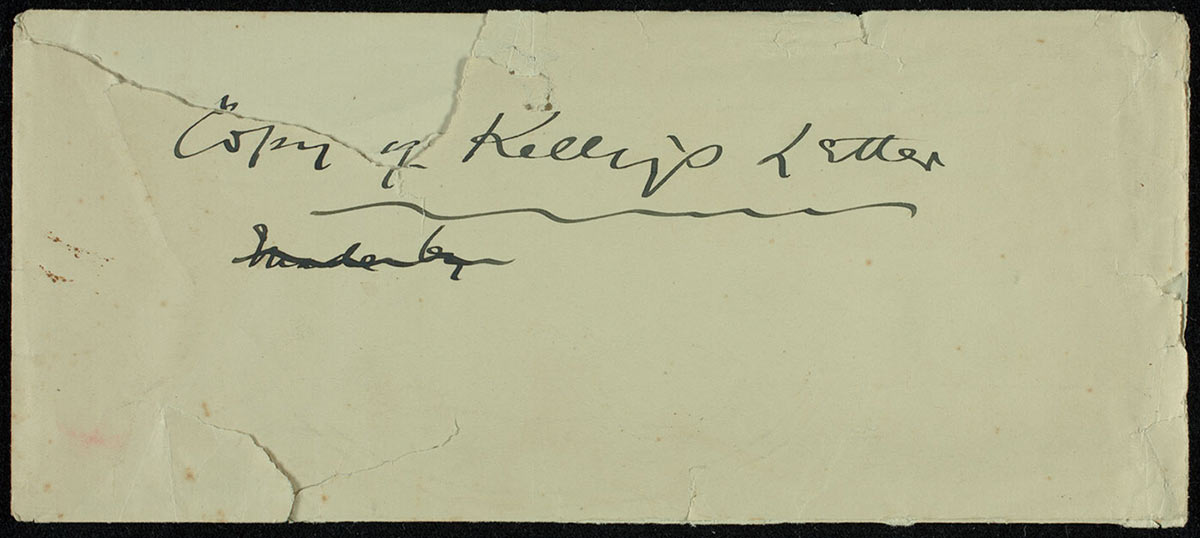 Copy of Kelly's Letter